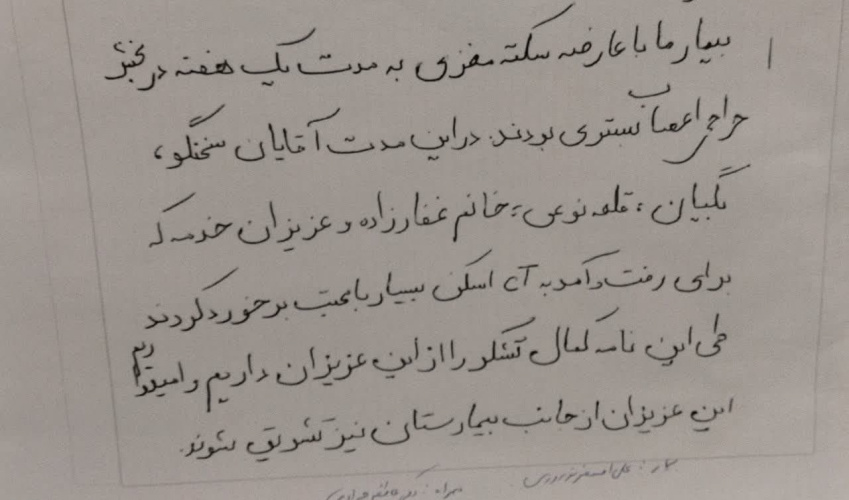 بیمار ما با عارضه سکته مغزی به مدت یک هفته در بخش
جراحی اعصاب بستری بودند. در این مدت آقایان سخنگو،
نگیبان، قلعه نوعی، خانم غفارزاده و عزیزان خدمه که
برای رفت و آمد به آی اسکن بسیار با محبت برخورد کردند
طی این نامه کمال تشکر را از این عزیزان داریم و امیدواریم
این عزیزان از جانب بیمارستان نیز تشویق شوند.